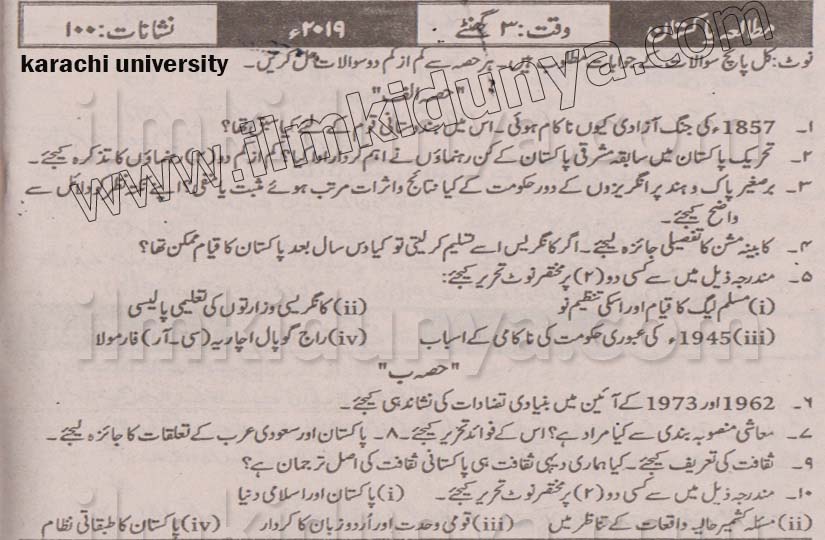 مطالعہ پاکستان وقت: ۳ گھنٹے ۲۰۱۹ء نشانات: ۱۰۰
karachi university
نوٹ: کل پانچ سوالات کے جوابات مطلوب ہیں۔ ہر حصہ سے کم از کم دو سوالات حل کریں۔
"حصہ الف"
۱۔ 1857ء کی جنگ آزادی کیوں ناکام ہوئی۔ اس میں ہندوستانی قوم کے لئے کیا سبق تھا؟
۲۔ تحریک پاکستان میں سابقہ مشرقی پاکستان کے کن رہنماؤں نے اہم کردار ادا کیا؟ کم از کم دو (۲) رہنماؤں کا تذکرہ کیجئے۔
۳۔ برصغیر پاک و ہند پر انگریزوں کے دور حکومت کے کیا نتائج و اثرات مرتب ہوئے مثبت یا منفی؟ اپنے نقطہ نظر کو دلائل سے
واضح کیجئے۔
۴۔ کابینہ مشن کا تفصیلی جائزہ لیجئے۔ اگر کانگریس اسے تسلیم کر لیتی تو کیا دس سال بعد پاکستان کا قیام ممکن تھا؟
۵۔ مندرجہ ذیل میں سے کسی دو (۲) پر مختصر نوٹ تحریر کیجئے:
(i) مسلم لیگ کا قیام اور اسکی تنظیم نو (ii) کانگریسی وزارتوں کی تعلیمی پالیسی
(iii) 1945ء کی عبوری حکومت کی ناکامی کے اسباب (iv) راج گوپال اچاریہ (سی۔ آر) فارمولا
"حصہ ب"
۶۔ 1962 اور 1973 کے آئین میں بنیادی تضادات کی نشاندہی کیجئے۔
۷۔ معاشی منصوبہ بندی سے کیا مراد ہے؟ اس کے فوائد تحریر کیجئے۔ ۸۔ پاکستان اور سعودی عرب کے تعلقات کا جائزہ لیجئے۔
۹۔ ثقافت کی تعریف کیجئے۔ کیا ہماری دیہی ثقافت ہی پاکستانی ثقافت کی اصل ترجمان ہے؟
۱۰۔ مندرجہ ذیل میں سے کسی دو (۲) پر مختصر نوٹ تحریر کیجئے۔ (i) پاکستان اور اسلامی دنیا
(ii) مسئلہ کشمیر حالیہ واقعات کے تناظر میں (iii) قومی وحدت اور اُردو زبان کا کردار (iv) پاکستان کا طبقاتی نظام
www.ilmkidunya.com
ilmkidunya.com
ilmkidunya.com
ilmkidunya.com